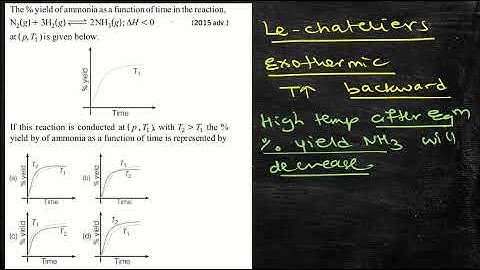 The % yield of ammonia as a function of time in the reaction,
N₂(g) + 3H₂(g) ⇌ 2NH₃(g); ΔH < 0 (2015 adv.)
at (p, T₁) is given below.
% yield
T₁
Time
If this reaction is conducted at (p, T₂), with T₂ > T₁ the %
yield by of ammonia as a function of time is represented by
(a) % yield T₂ T₁ Time
(b) % yield T₁ T₂ Time
(c) % yield T₁ T₂ Time
(d) % yield T₂ T₁ Time
Le-chateliers
exothermic
T↑ backward
High temp after eqm
% yield NH₃ will
decrease